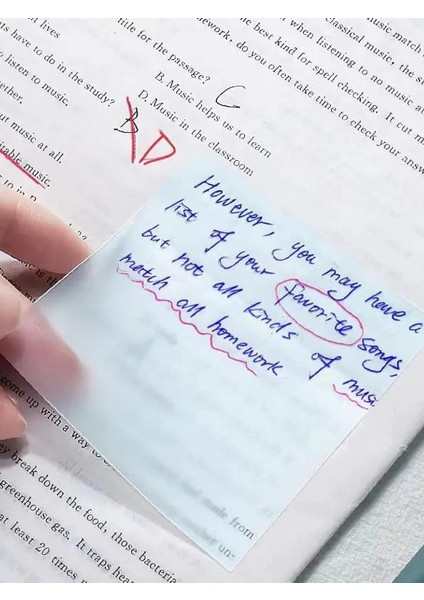 lives
title for the passage?
B. Music helps us to learn
D. Music in the classroom
C
B
D
ts have to do in the study?
o listen to music.
ether.
ut music at all.
itable music.
classical music, the
when listening to no music a
e best kind for spell checking. It cut m
mework, do you often take time to check your answ
However, you may have a
list of your favorite songs,
but not all kinds of musi
match all homework.
come up with a way to
y break down the food, those bacteria
greenhouse gas. It traps hea
at least 20 times
made from
un-